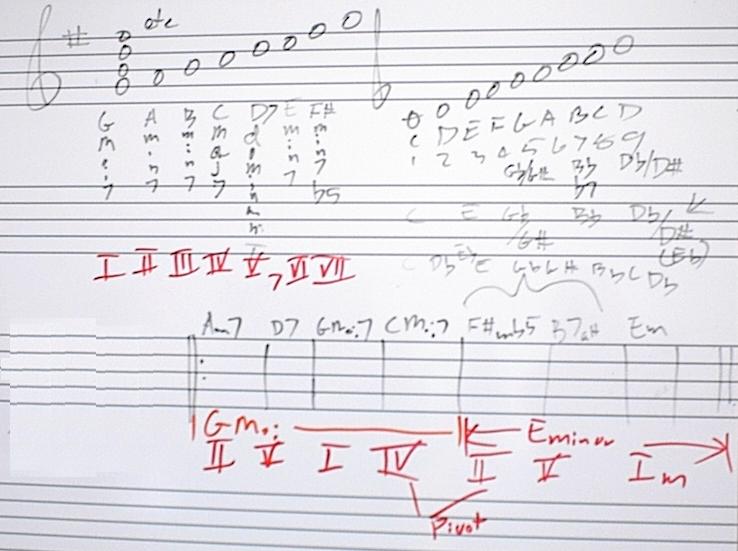 # etc
G A B C D7 E F#
m m m m d m m
a i i a o i i
j n n j m n n
7 7 7 7 i 7 7
n b5
a
n
t
I II III IV V7 VI VII
C D E F G A B C D
1 2 3 4 5 6 7 8 9
Gb/G# Bb Db/D#
b7
C E Gb/G# Bb Db/D# (Eb)
C Db Eb E Gb G# Bb C Db
Am7 D7 Gmaj7 Cmaj7 F#mb5 B7alt Em
Gmaj Eminor
II V I IV II V Im
Pivot